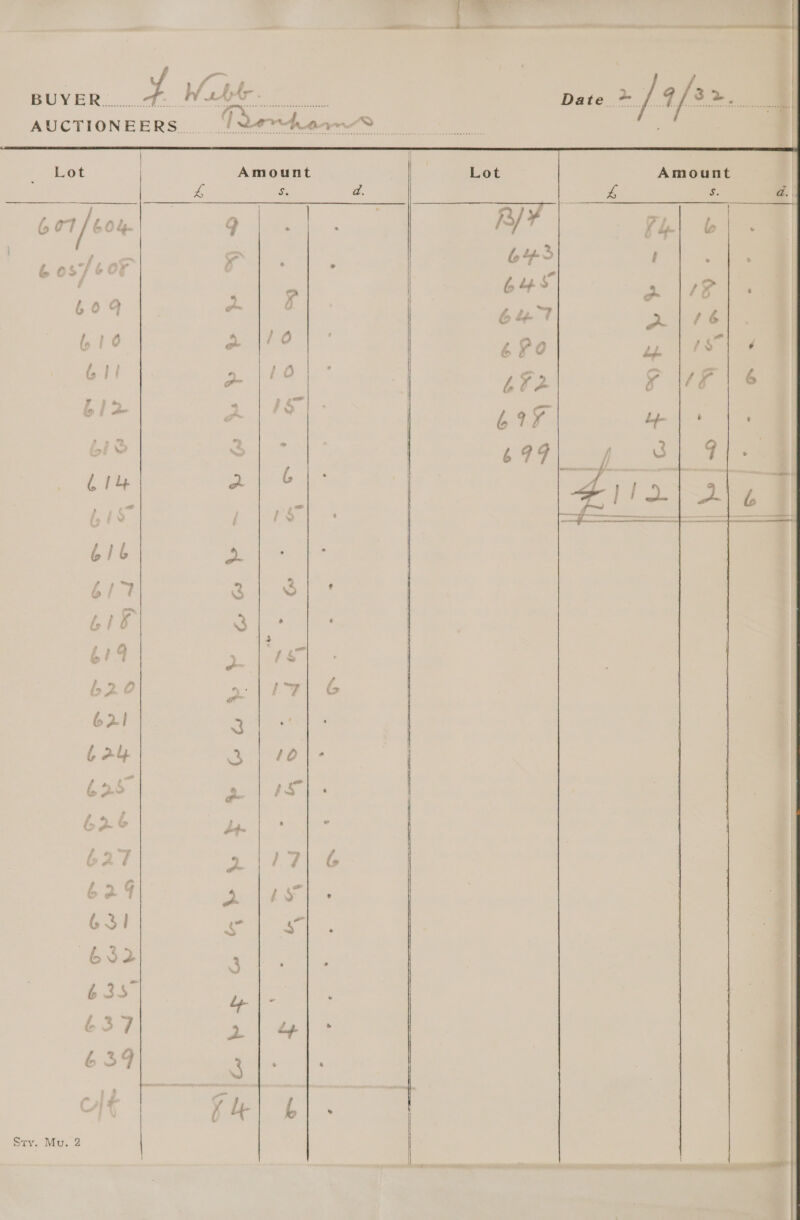 BUYER F. Webb. Date 2/9/32.
AUCTIONEERS Bonhams
Lot Amount Lot Amount
£ s. d. £ s. d.
607/604 9 . . B/F 84 6 .
605/608 8 . . 643 1 . .
609 2 8 645 2 18 .
610 2 10 . 647 2 16 .
611 2 10 . 680 4 15 .
612 2 15 . 682 8 18 6
613 3 . . 698 4 . .
614 2 6 . 699 3 9 .
615 1 15 . £112 2 6
616 2 . .
617 3 3 .
618 3 . .
619 2 15 .
620 2 17 6
621 3 . .
624 3 10 .
625 2 15 .
626 4 . .
627 2 17 6
629 2 15 .
631 5 5 .
632 3 . .
635 4 - .
637 2 4 .
639 3 . .
c/f 84 6 .
Sty. Mu. 2